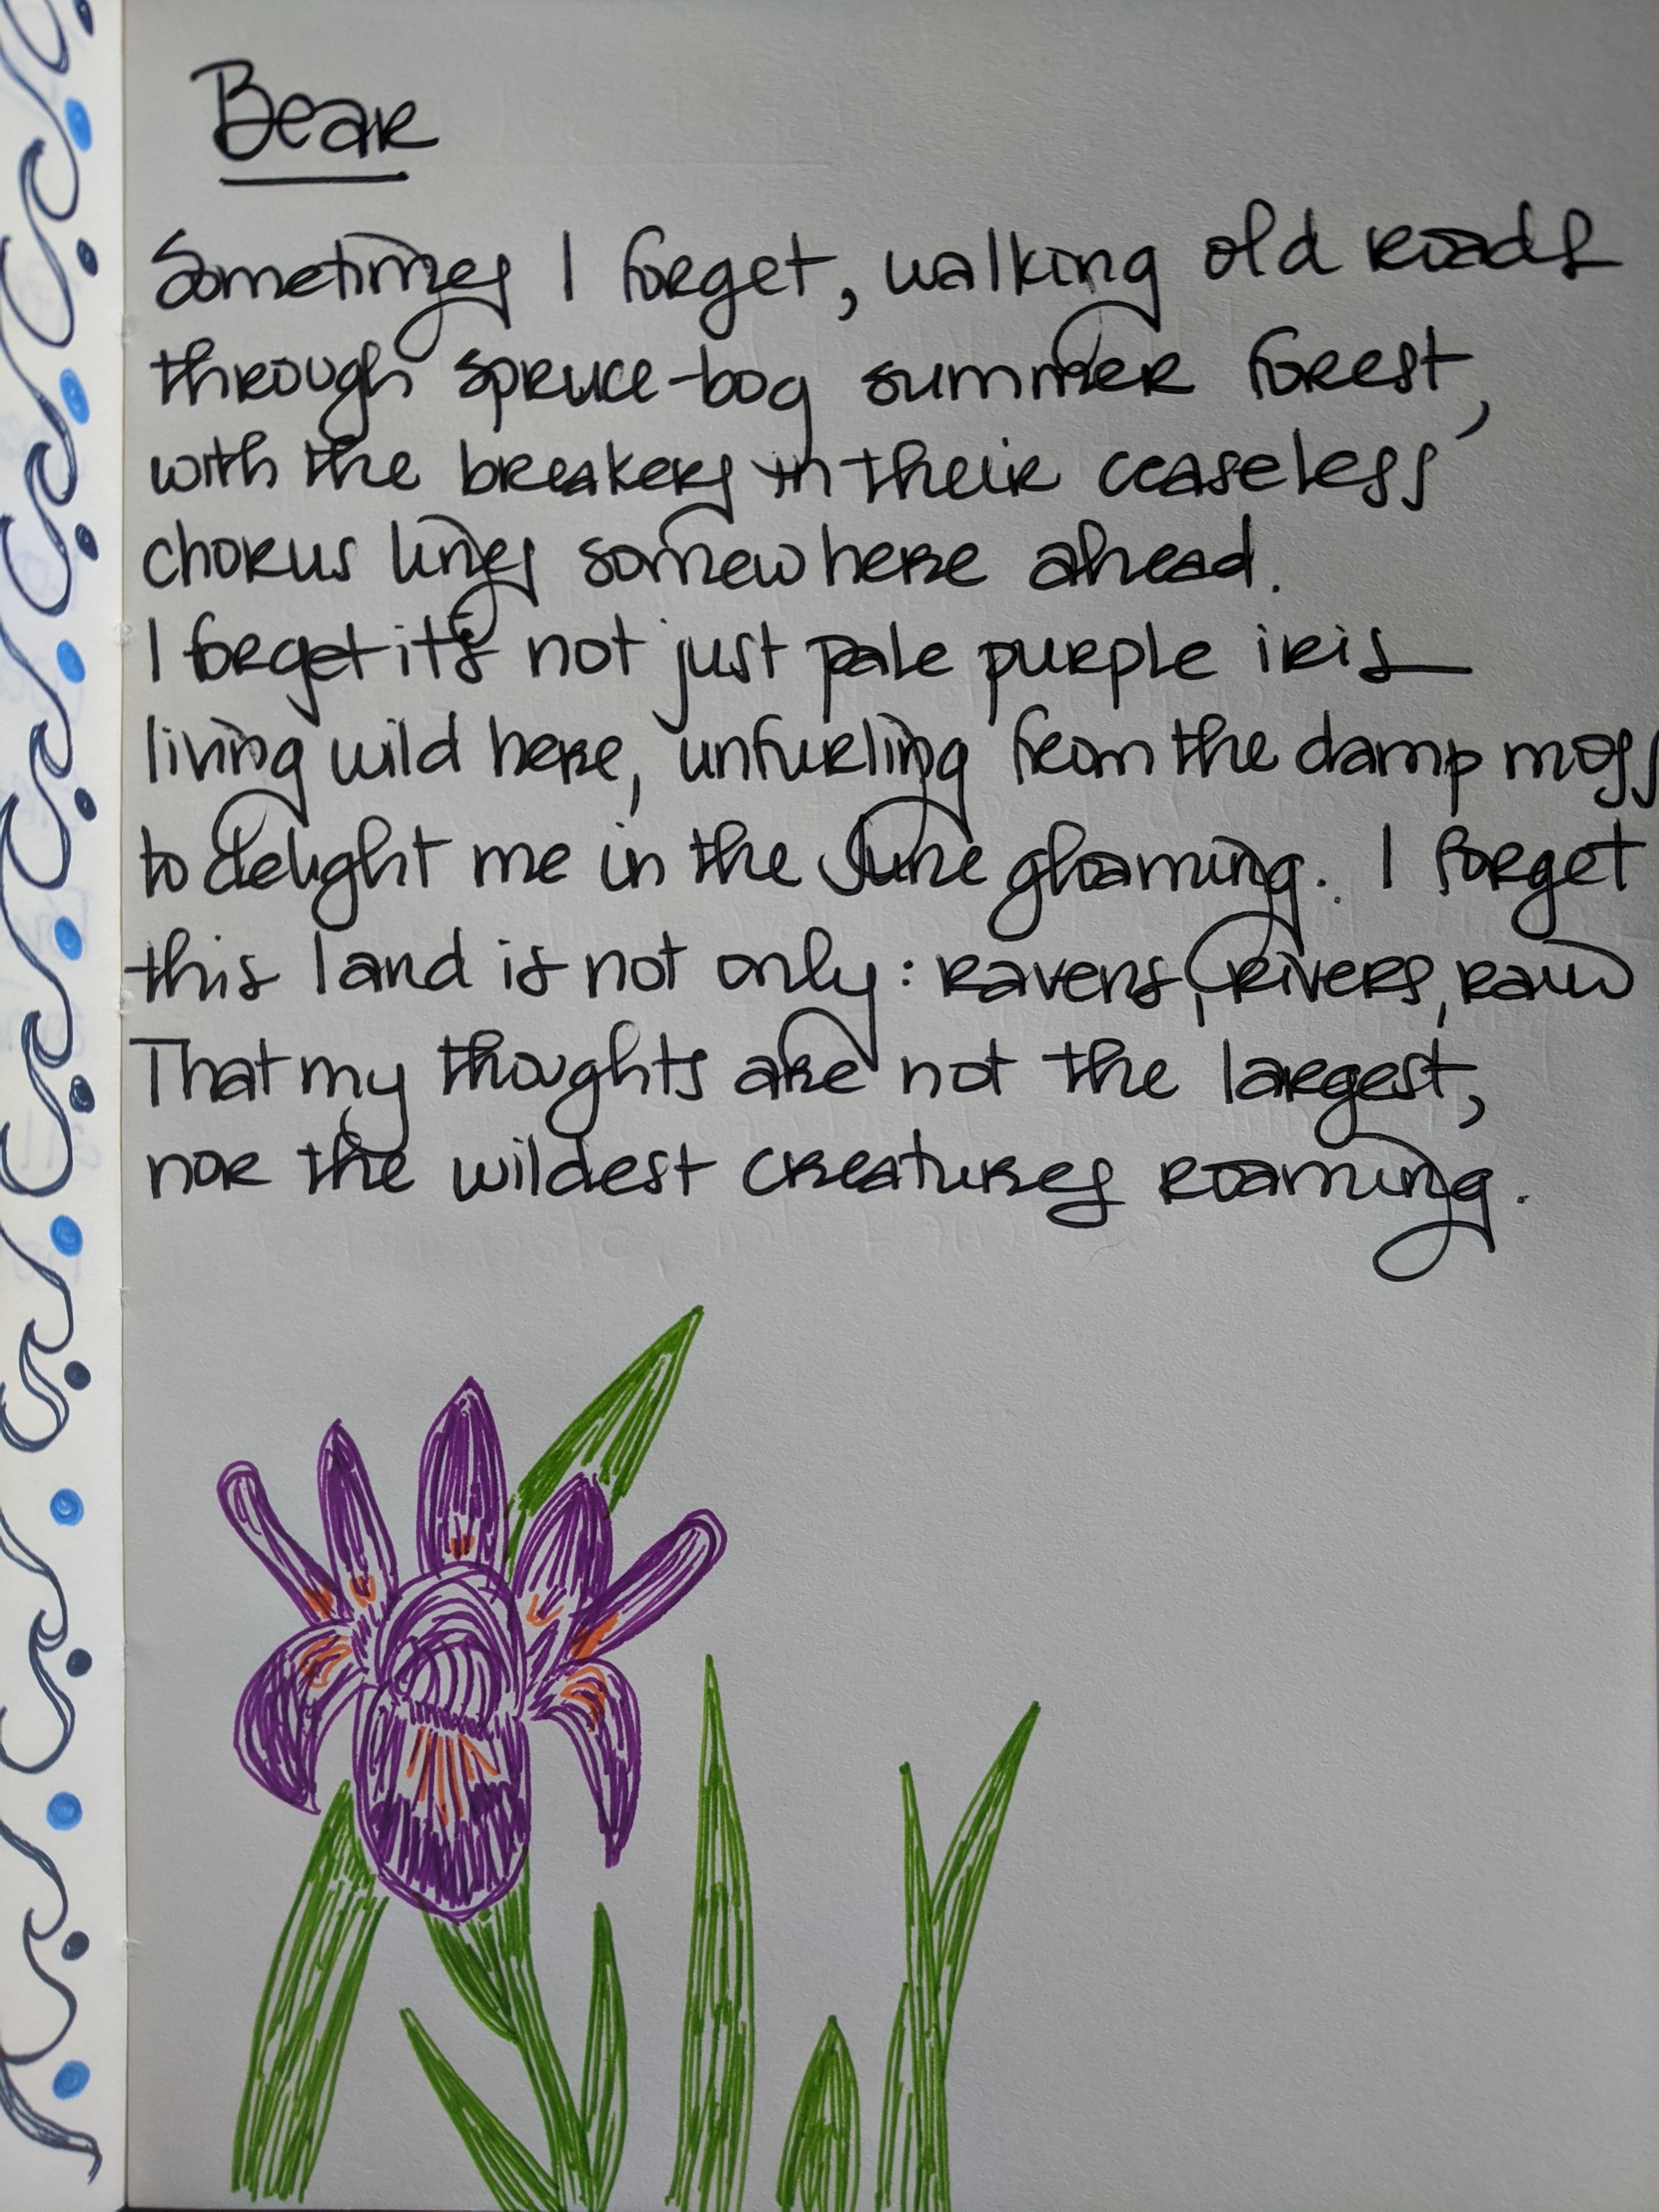 Bear
Sometimes I forget, walking old roads
through spruce-bog summer forest,
with the breakers in their ceaseless
chorus lines somewhere ahead.
I forget it's not just pale purple iris
living wild here, unfurling from the damp moss
to delight me in the June gloaming. I forget
this land is not only: ravens, rivers, raw
That my thoughts are not the largest,
nor the wildest creatures roaming.